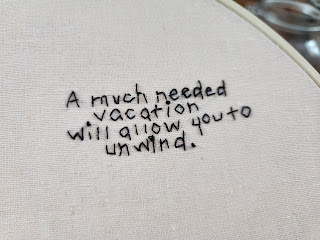 A much needed
vacation
will allow you to
unwind.